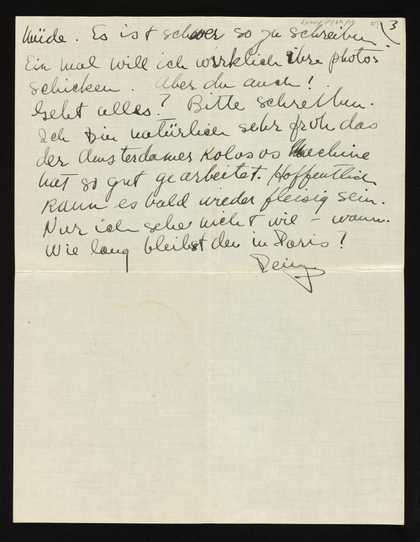 3
müde. Es ist schwer so zu schreiben.
Ein mal will ich wirklich ihre photos
schicken. Aber du auch!
Geht alles? Bitte schreiben.
Ich bin natürlich sehr froh das
der Amsterdamer Kolosos Machine
hat so gut gearbeitet. Hoffentlich
kann es bald wieder fleisig sein.
Nur ich sehe nicht wie - wann.
Wie lang bleibst du in Paris?